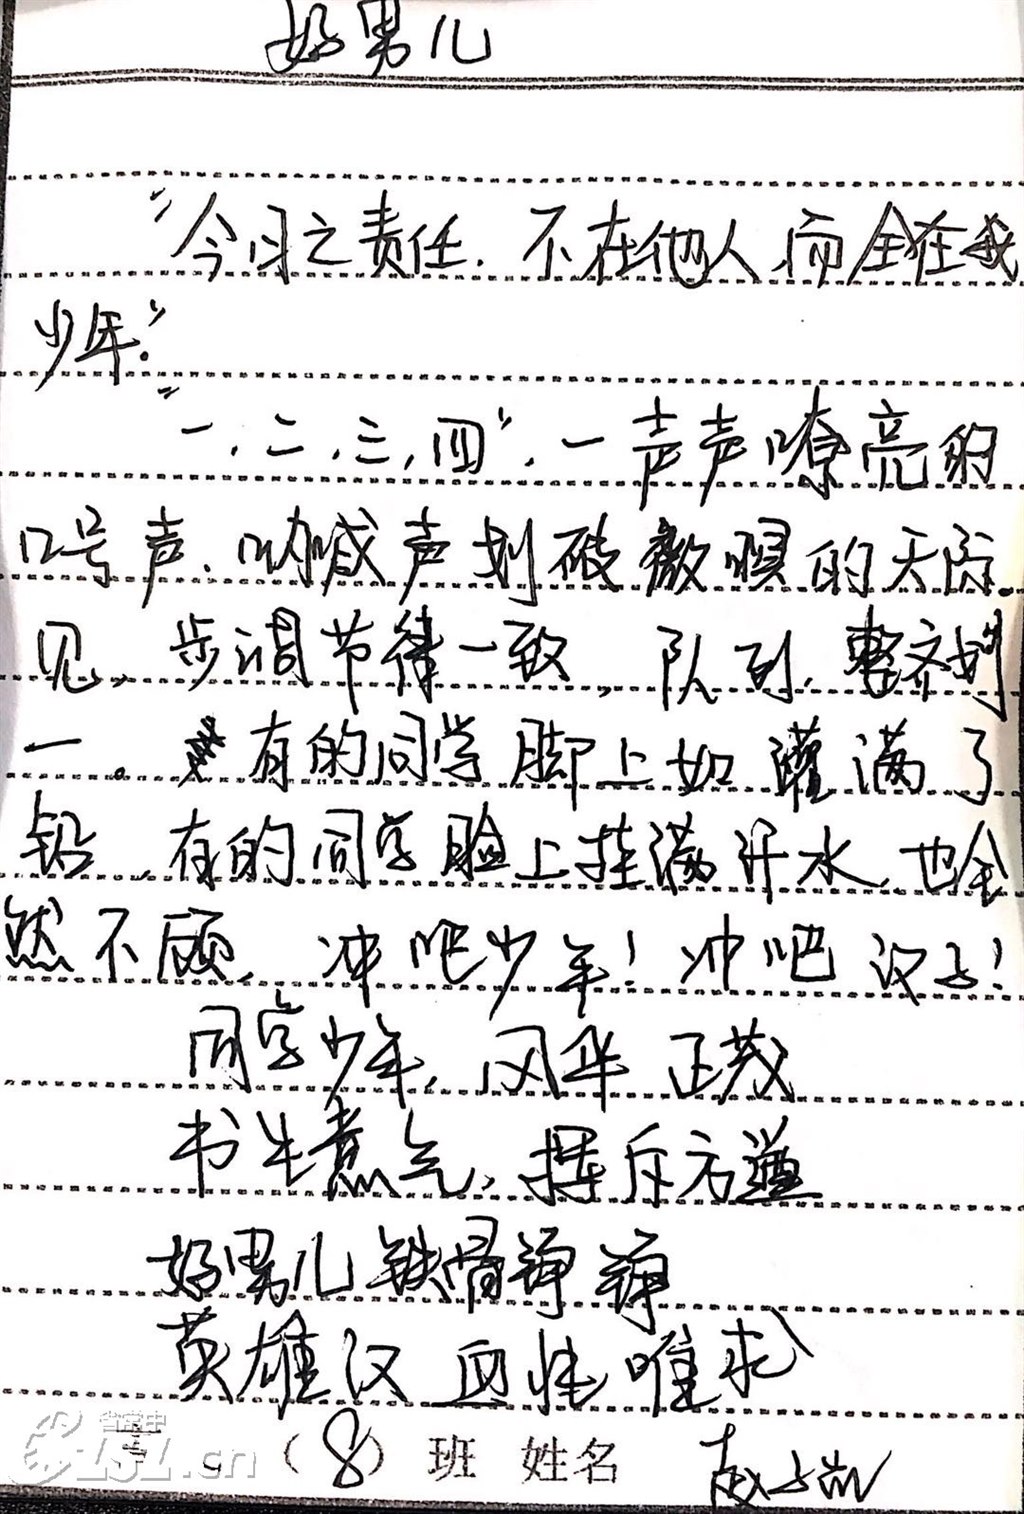 好男儿
"今日之责任，不在他人，而全在我
少年."
"一，二，三，四"，一声声嘹亮的
口号声、呐喊声划破
的天际，
见，步调节律一致，队列，整齐划
一。有的同学脚上如灌满了
铅，有的同学脸上挂满汗水，也全
然不顾，冲吧少年！冲吧汉子！
同学少年，风华正茂
书生意气，挥斥方遒
好男儿铁骨铮铮
英雄汉血性唯求
省常中
LSL.cn
（8）班 姓名 赵